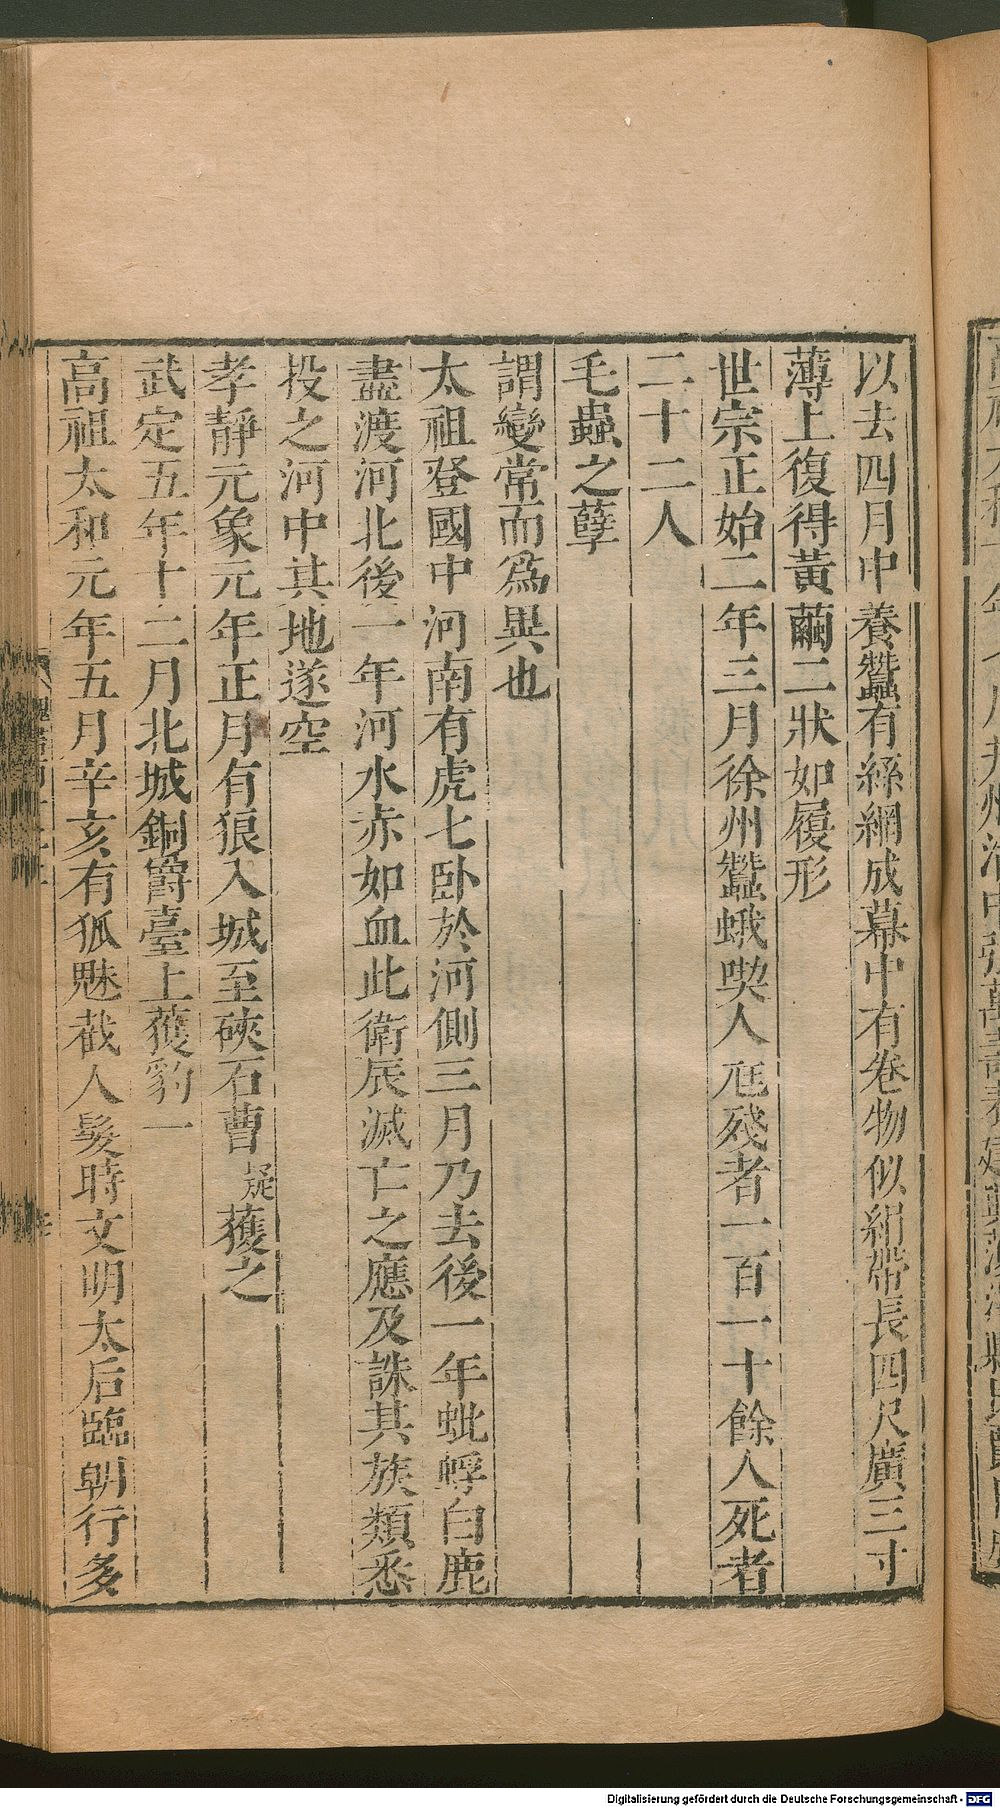 以去四月中養蠶有絲網成幕中有卷物似絹帶長四尺廣三寸
薄上復得黃繭二狀如履形
世宗正始二年三月徐州蠶蛾喫人尫殘者一百一十餘人死者
二十二人
毛蟲之孽
謂變常而爲異也
太祖登國中河南有虎七卧於河側三月乃去後一年蚍蜉白鹿
盡渡河北後一年河水赤如血此衛辰滅亡之應及誅其族類悉
投之河中其地遂空
孝靜元象元年正月有狼入城至硤石曹疑獲之
武定五年十二月北城銅爵臺上獲豹一
高祖太和元年五月辛亥有狐魅截人髮時文明太后臨朝行多
Digitalisierung gefördert durch die Deutsche Forschungsgemeinschaft - DFG